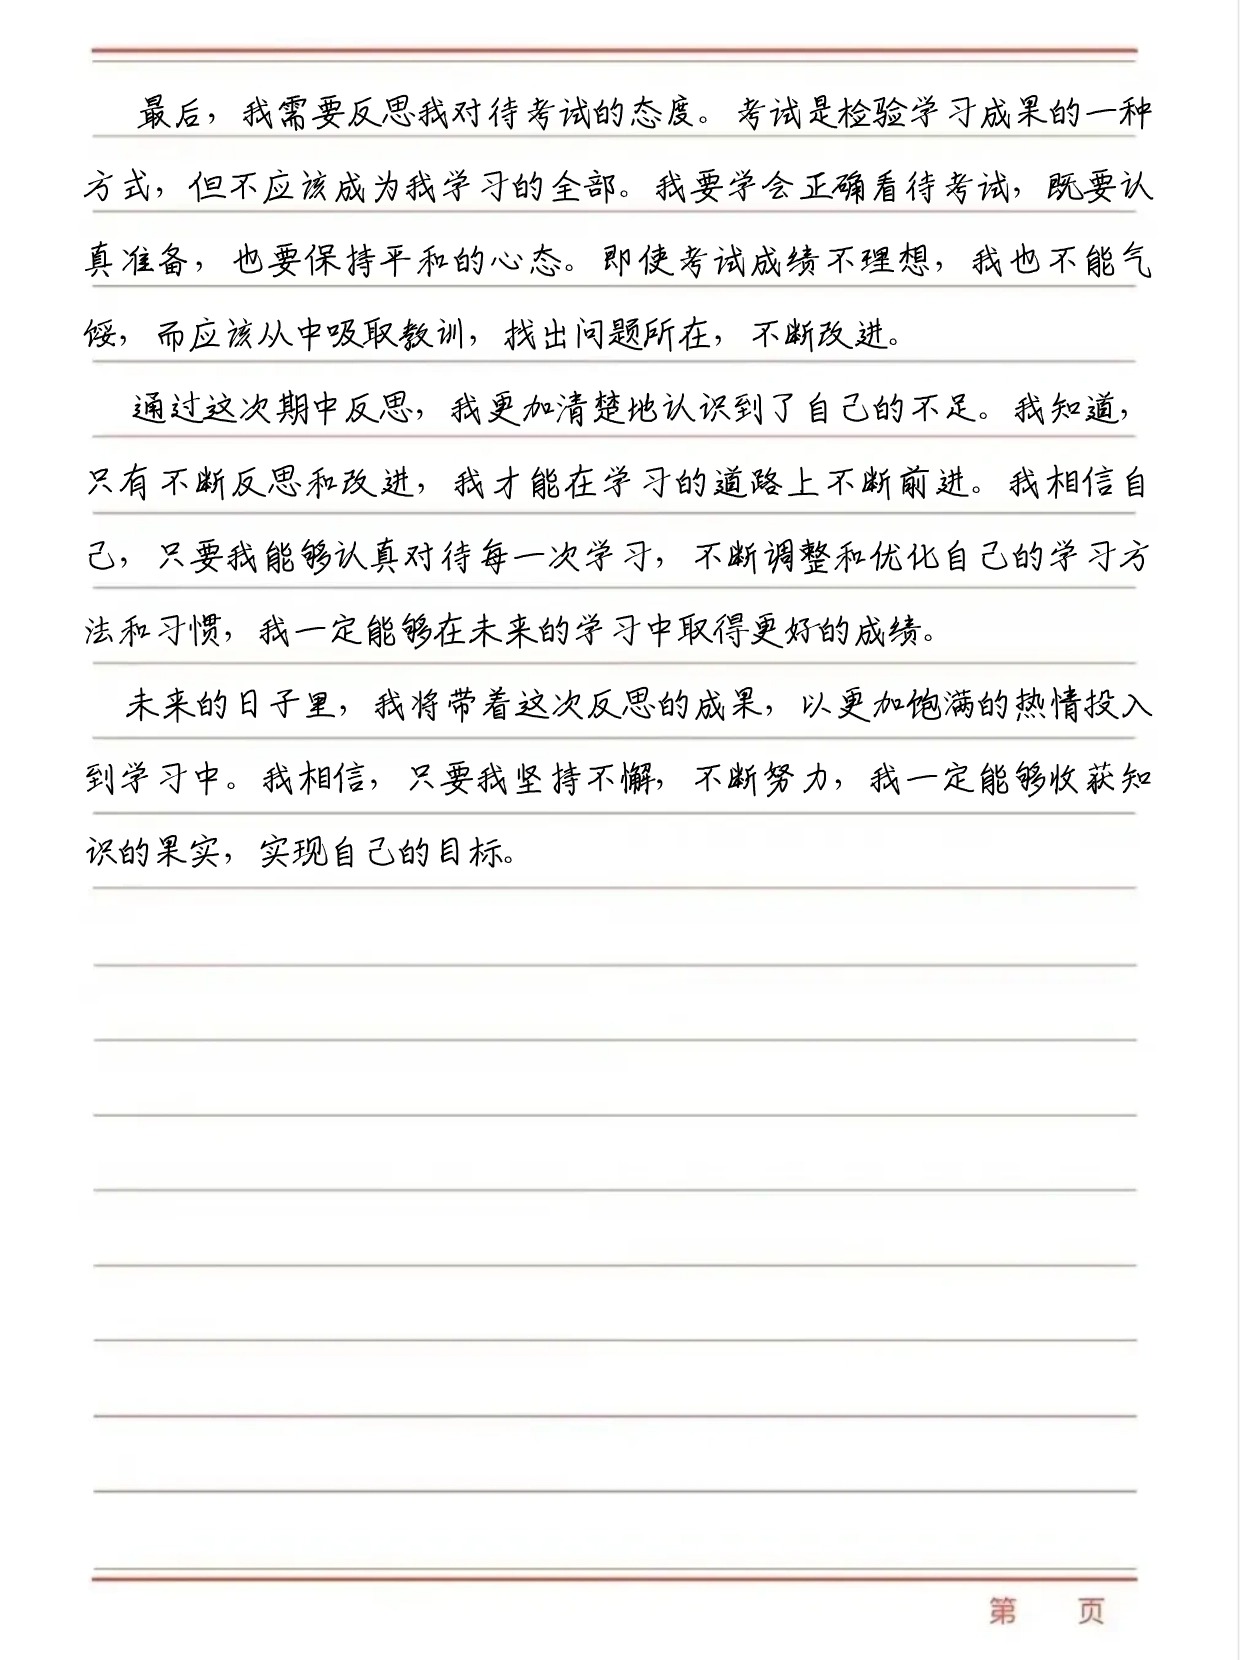 最后，我需要反思我对待考试的态度。考试是检验学习成果的一种
方式，但不应该成为我学习的全部。我要学会正确看待考试，既要认
真准备，也要保持平和的心态。即使考试成绩不理想，我也不能气
馁，而应该从中吸取教训，找出问题所在，不断改进。
通过这次期中反思，我更加清楚地认识到了自己的不足。我知道，
只有不断反思和改进，我才能在学习的道路上不断前进。我相信自
己，只要我能够认真对待每一次学习，不断调整和优化自己的学习方
法和习惯，我一定能够在未来的学习中取得更好的成绩。
未来的日子里，我将带着这次反思的成果，以更加饱满的热情投入
到学习中。我相信，只要我坚持不懈，不断努力，我一定能够收获知
识的果实，实现自己的目标。
第 页